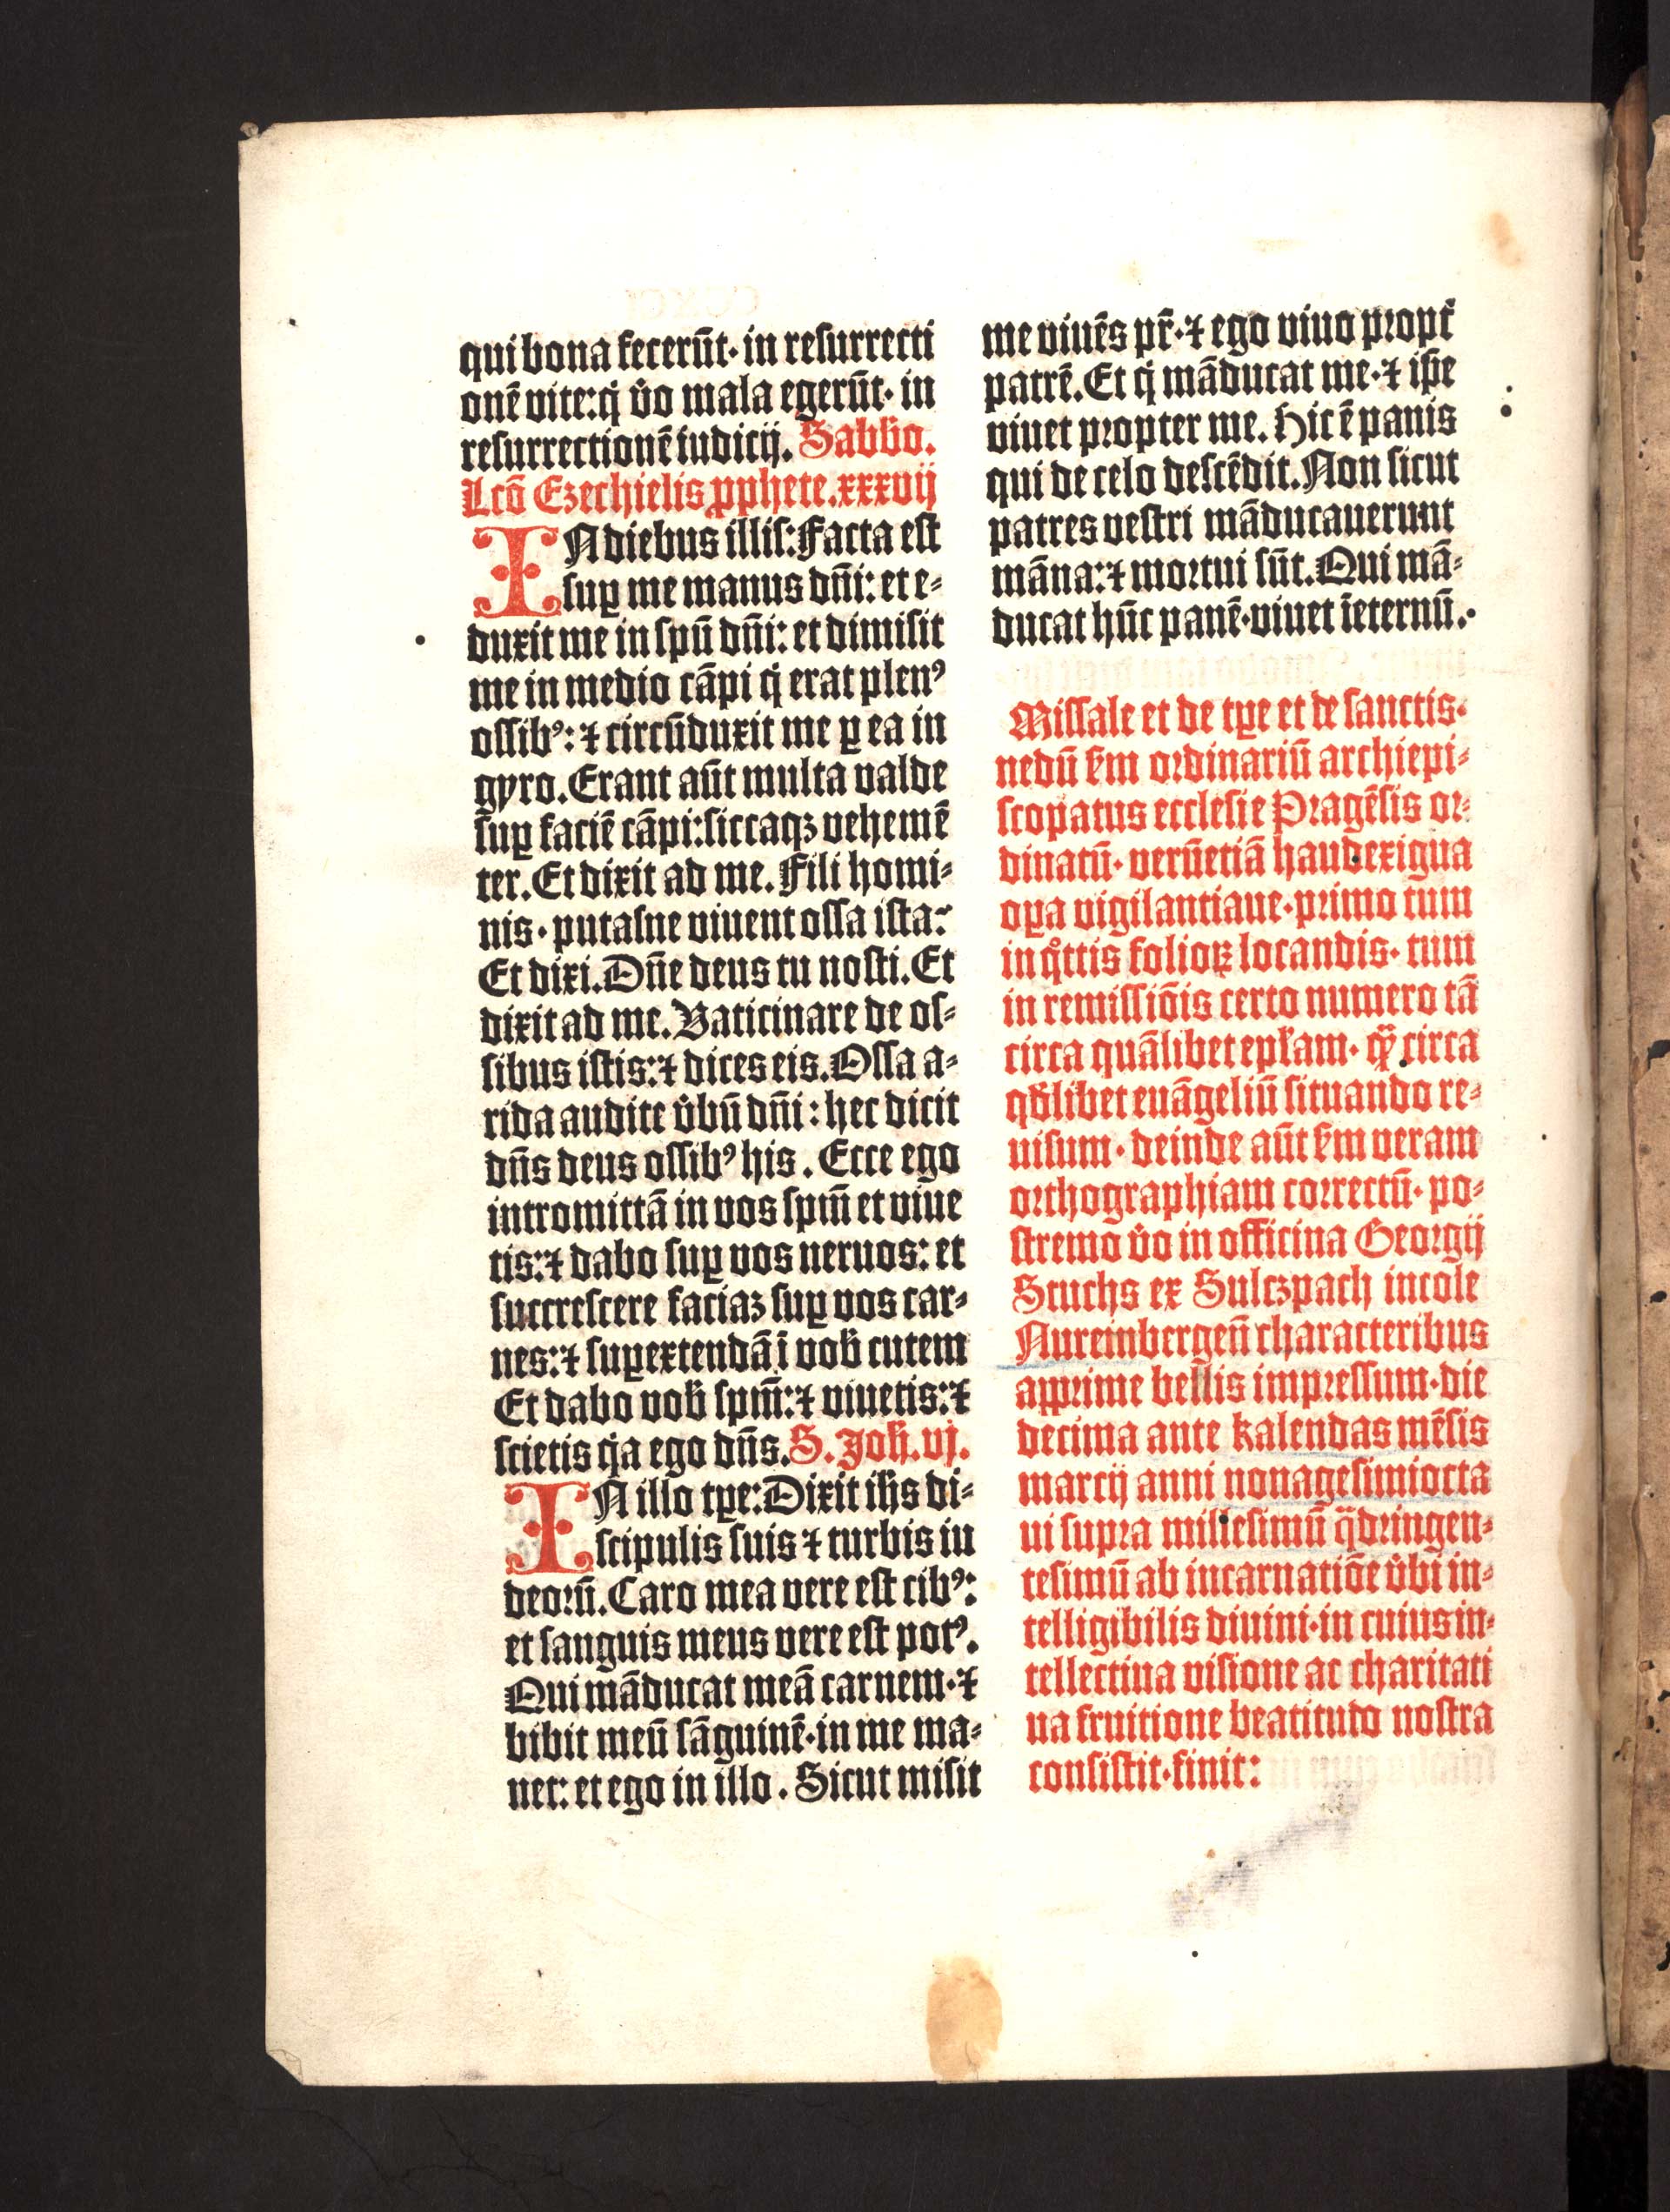 qui bona fecerūt· in resurrecti
onē vite: q̇ v̇o mala egerūt· in
resurrectionē iudicij. Sabb̄o.
Lcō Ezechielis ꝓphete. xxxvij
IN diebus illis: Facta est
suꝑ me manus dn̄i: et e-
duxit me in spū dn̄i: et dimisit
me in medio cāpi q̇ erat plenꝰ
ossibꝰ: ⁊ circūduxit me ꝑ ea in
gyro. Erant aūt multa valde
suꝑ faciē cāpi: siccaqꝫ vehemē
ter. Et dixit ad me. Fili homi-
nis· putasne viuent ossa ista:
Et dixi. Dn̄e deus tu nosti. Et
dixit ad me. Vaticinare de os-
sibus istis: ⁊ dices eis. Ossa a-
rida audite v̇bū dn̄i: hec dicit
dn̄s deus ossibꝰ his. Ecce ego
intromittā in vos spm̄ et viue
tis: ⁊ dabo suꝑ vos neruos: et
succrescere faciaꝫ suꝑ vos car-
nes: ⁊ suꝑextendā ī vob̄ cutem
Et dabo vob̄ spm̄: ⁊ viuetis: ⁊
scietis q̇a ego dn̄s. S. Joh̄. vj.
IN illo tꝑe: Dixit ih̄s di-
scipulis suis ⁊ turbis iu
deorū. Caro mea vere est cibꝰ:
et sanguis meus vere est potꝰ.
Qui māducat meā carnem· ⁊
bibit meū sāguinē· in me ma-
net: et ego in illo. Sicut misit
me viuēs pr̄· ⁊ ego viuo propt̄
patrē. Et q̇ māducat me· ⁊ ip̄e
viuet propter me. Hic ē panis
qui de celo descēdit. Non sicut
patres vestri māducauerunt
māna: ⁊ mortui sūt. Qui mā-
ducat hūc panē· viuet ī eternū.
Missale et de tꝑe et de sanctis·
nedū ẜm ordinariū archiepi-
scopatus ecclesie Pragēsis or-
dinatū· verūetiā haud exigua
oꝑa vigilantiaue· primo tum
in q̊ttis folioꝝ locandis· tum
in remissiōis certo numero tā
circa quālibet epl̄am· qꝫ̄ circa
qđlibet euāgeliū situando re-
uisum· deinde aūt ẜm veram
orthographiam correctū· po-
stremo v̇o in officina Georgij
Stuchs ex Sulczpach incole
Nurembergeñ characteribus
apprime bellis impressum· die
decima ante kalendas mēsis
marcij anni nonagesimiocta
ui supra millesimū q̈dringen-
tesimū ab incarnatiōe v̇bi in-
telligibilis diuini· in cuius in-
tellectiua visione ac charitati
ua fruitione beatitudo nostra
consistit· finit: